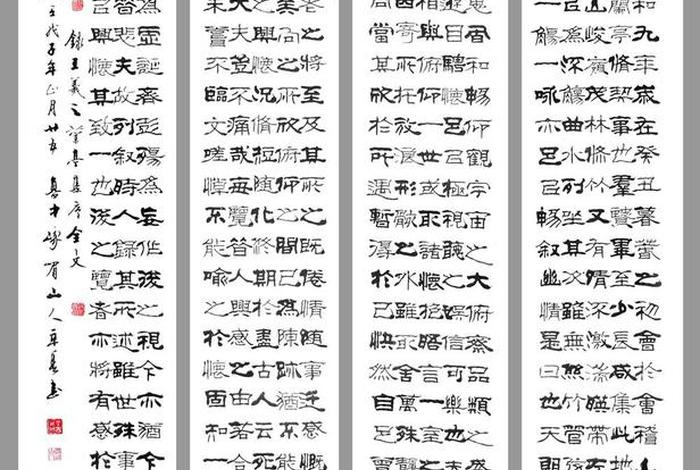 和九年歲在癸丑暮春之初會於會稽山
蘭亭脩禊事也羣賢畢至少長咸集此地
山峻嶺茂林脩竹又有清流激湍暎帶左
以為流觴曲水列坐其次雖無絲竹管弦
一觴一詠亦足以暢敘幽情是日也天朗
惠風和暢仰觀宇宙之大俯察品類之盛
遊目騁懷足以極視聽之娛信可樂也夫
相與俯仰一世或取諸懷抱悟言一室之
因寄所託放浪形骸之外雖趣舍萬殊靜
同當其欣於所遇暫得於己快然自足不
老之將至及其所之既倦情隨事遷感慨
矣向之所欣俯仰之間已為陳跡猶不能
以之興懷況脩短隨化終期於盡古人云
大矣豈不痛哉每覽昔人興感之由若合
未嘗不臨文嗟悼不能喻之於懷固知一
為虛誕齊彭殤為妄作後之視今亦猶今
昔悲夫故列敘時人錄其所述雖世殊事
以興懷其致一也後之覽者亦將有感於
錄王羲之蘭亭集序全文
戊子年正月廿五 峨眉山人